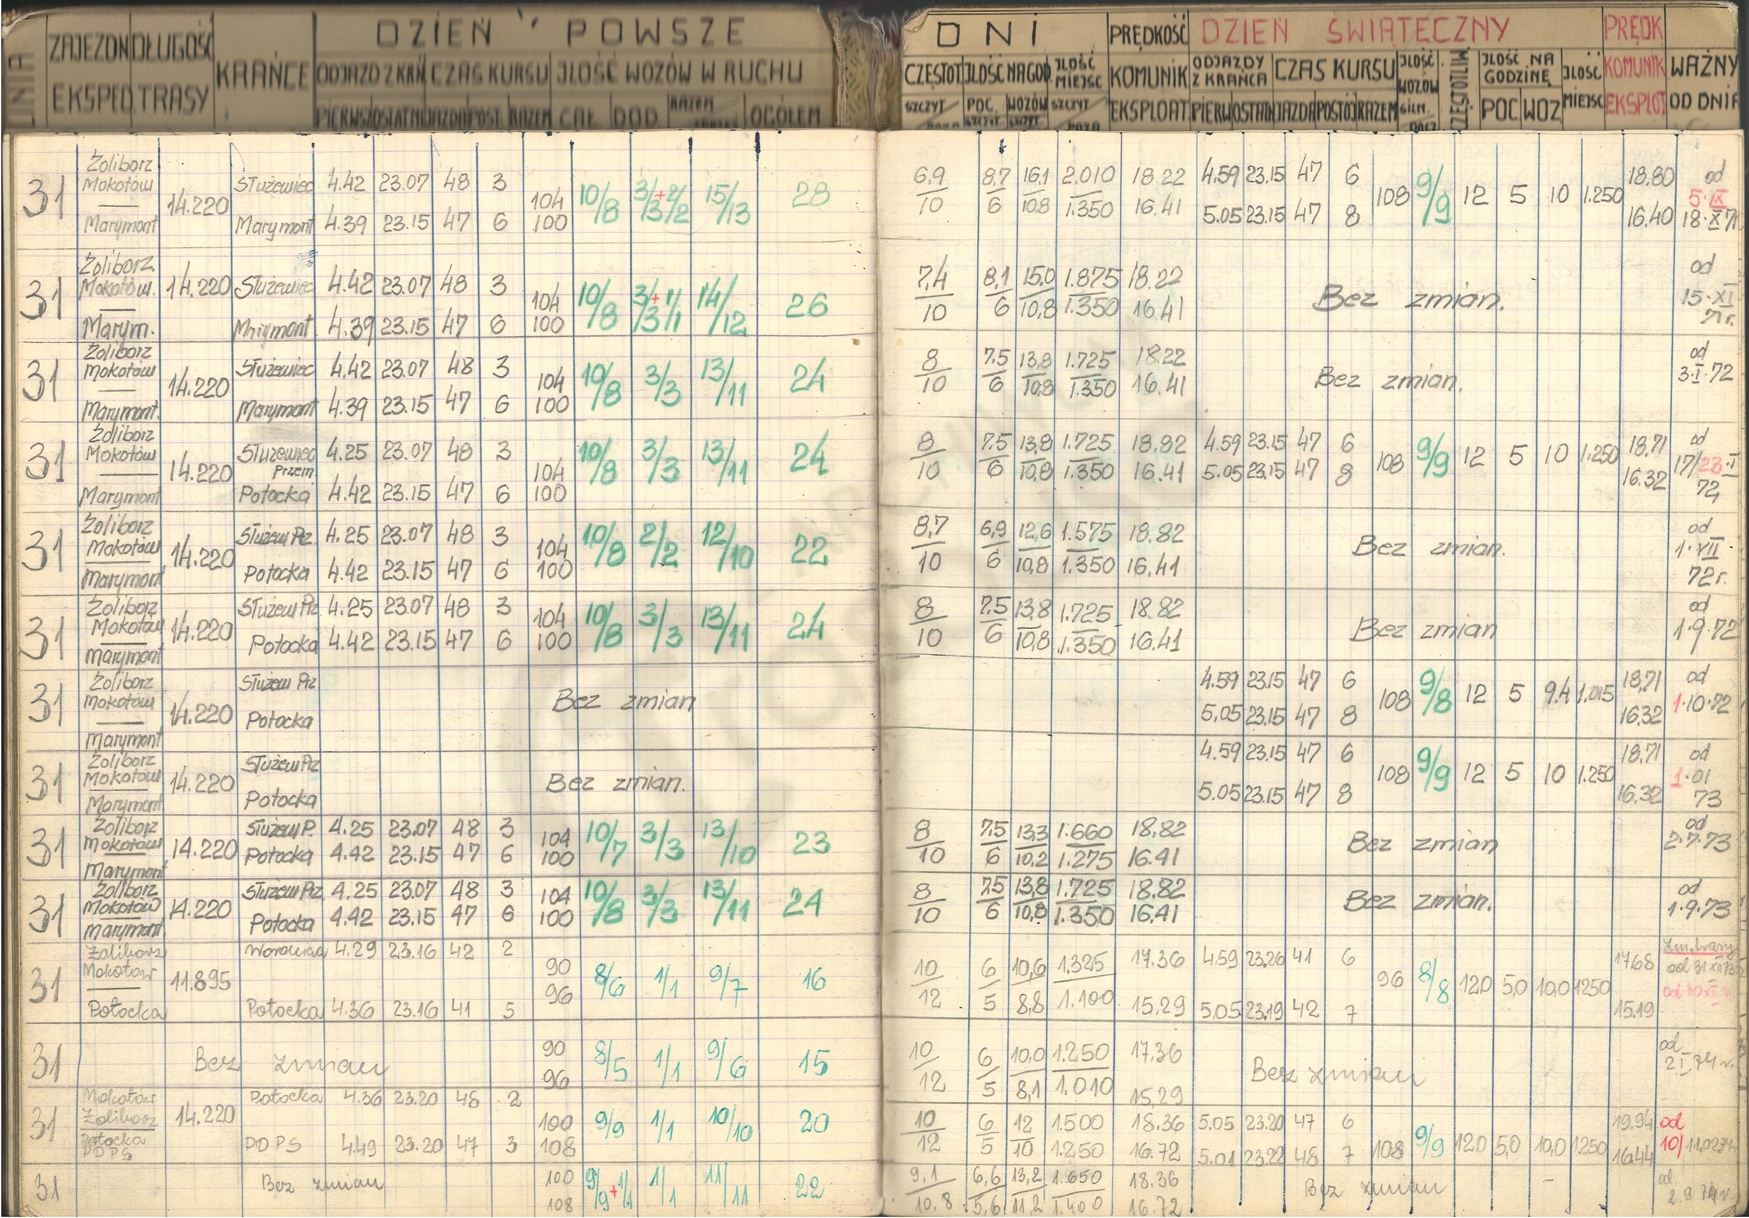 DZIEŃ POWSZE DNI
DZIEŃ ŚWIĄTECZNY
ZAJEZDN EKSPED
DŁUGOŚĆ TRASY
KRAŃCE
ODJAZD Z KRAŃ
CZAS KURSU
ILOŚĆ WOZÓW W RUCHU
CAŁ. DOD. RAZEM OGÓŁEM
CZĘSTOT.
ILOŚĆ NA GOD
ILOŚĆ MIEJSC
PRĘDKOŚĆ KOMUNIK EKSPLOAT
ODJAZDY Z KRAŃCA
CZAS KURSU
ILOŚĆ NA GODZINĘ
POC. WOZ
ILOŚĆ MIEJSC
PRĘDK KOMUNIK EKSPLOT
WAŻNY OD DNIA
31 Żoliborz Mokotów Marymont 14.220
Służewiec 4.42 23.07 48 3 104 10/8 15/13 28 6,9 8,7 16,1 2.010 18.22 4.59 23.15 47 6 108 9/9 12 5 10 1.250 18.80 od 5.IX
Marymont 4.39 23.15 47 6 100 10 6 10,8 1.350 16.41 5.05 23.15 47 8 16.40 18.X 71
31 Żoliborz Mokotów. Marym. 14.220
Służewiec 4.42 23.07 48 3 104 10/8 14/12 26 7,4 8,1 15,0 1.875 18.22 Bez zmian. od 15.XI 71r.
Marymont 4.39 23.15 47 6 100 10 6 10,8 1.350 16.41
31 Żoliborz Mokotów Marymont. 14.220
Służewiec 4.42 23.07 48 3 104 10/8 3/3 13/11 24 8 7.5 13,8 1.725 18.22 Bez zmian. od 3.I.72
Marymont 4.39 23.15 47 6 100 10 6 10,8 1.350 16.41
31 Żoliborz Mokotów Marymont 14.220
Służewiec Przem 4.25 23.07 48 3 104 10/8 3/3 13/11 24 8 7.5 13,8 1.725 18.82 4.59 23.15 47 6 108 9/9 12 5 10 1.250 18,71 od 17/23.I 72
Potocka 4.42 23.15 47 6 100 10 6 10,8 1.350 16.41 5.05 23.15 47 8 16.32
31 Żoliborz Mokotów Marymont 14.220
Służew Prz. 4.25 23.07 48 3 104 10/8 2/2 12/10 22 8,7 6,9 12,6 1.575 18.82 Bez zmian. od 1.VII 72r.
Potocka 4.42 23.15 47 6 100 10 6 10,8 1.350 16.41
31 Żoliborz Mokotów Marymont 14.220
Służew Prz 4.25 23.07 48 3 104 10/8 3/3 13/11 24 8 7.5 13,8 1.725 18.82 Bez zmian od 1.9.72
Potocka 4.42 23.15 47 6 100 10 6 10,8 1.350 16.41
31 Żoliborz Mokotów Marymont 14.220
Służew Prz Bez zmian 4.59 23.15 47 6 108 9/8 12 5 9.4 1.015 18,71 od 1.10.72
Potocka 5.05 23.15 47 8 16.32
31 Żoliborz Mokotów Marymont 14.220
Służew Prz Bez zmian. 4.59 23.15 47 6 108 9/9 12 5 10 1.250 18.71 od 1.01 73
Potocka 5.05 23.15 47 8 16.32
31 Żoliborz Mokotów Marymont 14.220
Służew P. 4.25 23.07 48 3 104 10/7 3/3 13/10 23 8 7.5 13,3 1.660 18.82 Bez zmian od 2.7.73
Potocka 4.42 23.15 47 6 100 10 6 10,2 1.275 16.41
31 Żoliborz Mokotów Marymont 14.220
Służew Prz 4.25 23.07 48 3 104 10/8 3/3 13/11 24 8 7.5 13,8 1.725 18.82 Bez zmian. od 1.9.73
Potocka 4.42 23.15 47 6 100 10 6 10,8 1.350 16.41
31 Żoliborz Mokotów Potocka 11.895
4.29 23.16 42 2 90 8/6 1/1 9/7 16 10 6 10,6 1.325 17.36 4.59 23.26 41 6 96 8/8 12,0 5,0 10,0 1250 17.68
Potocka 4.36 23.16 41 5 96 12 5 8,8 1.100 15,29 5.05 23.19 42 7 15.19
31 Bez zmian 90 8/5 1/1 9/6 15 10 6 10,0 1.250 17,36 Bez zmian od 2.I.74r.
96 12 5 8,1 1.010 15,29
31 Mokotów Żoliborz Potocka PDPS 14.220
Potocka 4.36 23.20 48 2 100 9/9 1/1 10/10 20 10 6 12 1.500 18.36 5.05 23.20 47 6 108 9/9 12,0 5,0 10,0 1250 19.94 od
PDPS 4.49 23.20 47 3 108 12 5 10 1.250 16.72 5.01 23.22 48 7 16.44
31 Bez zmian 100 9/9+1/1 1/1 11/11 22 9,1 6,6 13,2 1.650 18.36 Bez zmian - od 2.9.74r.
108 10.8 5,6 11,2 1.400 16.72